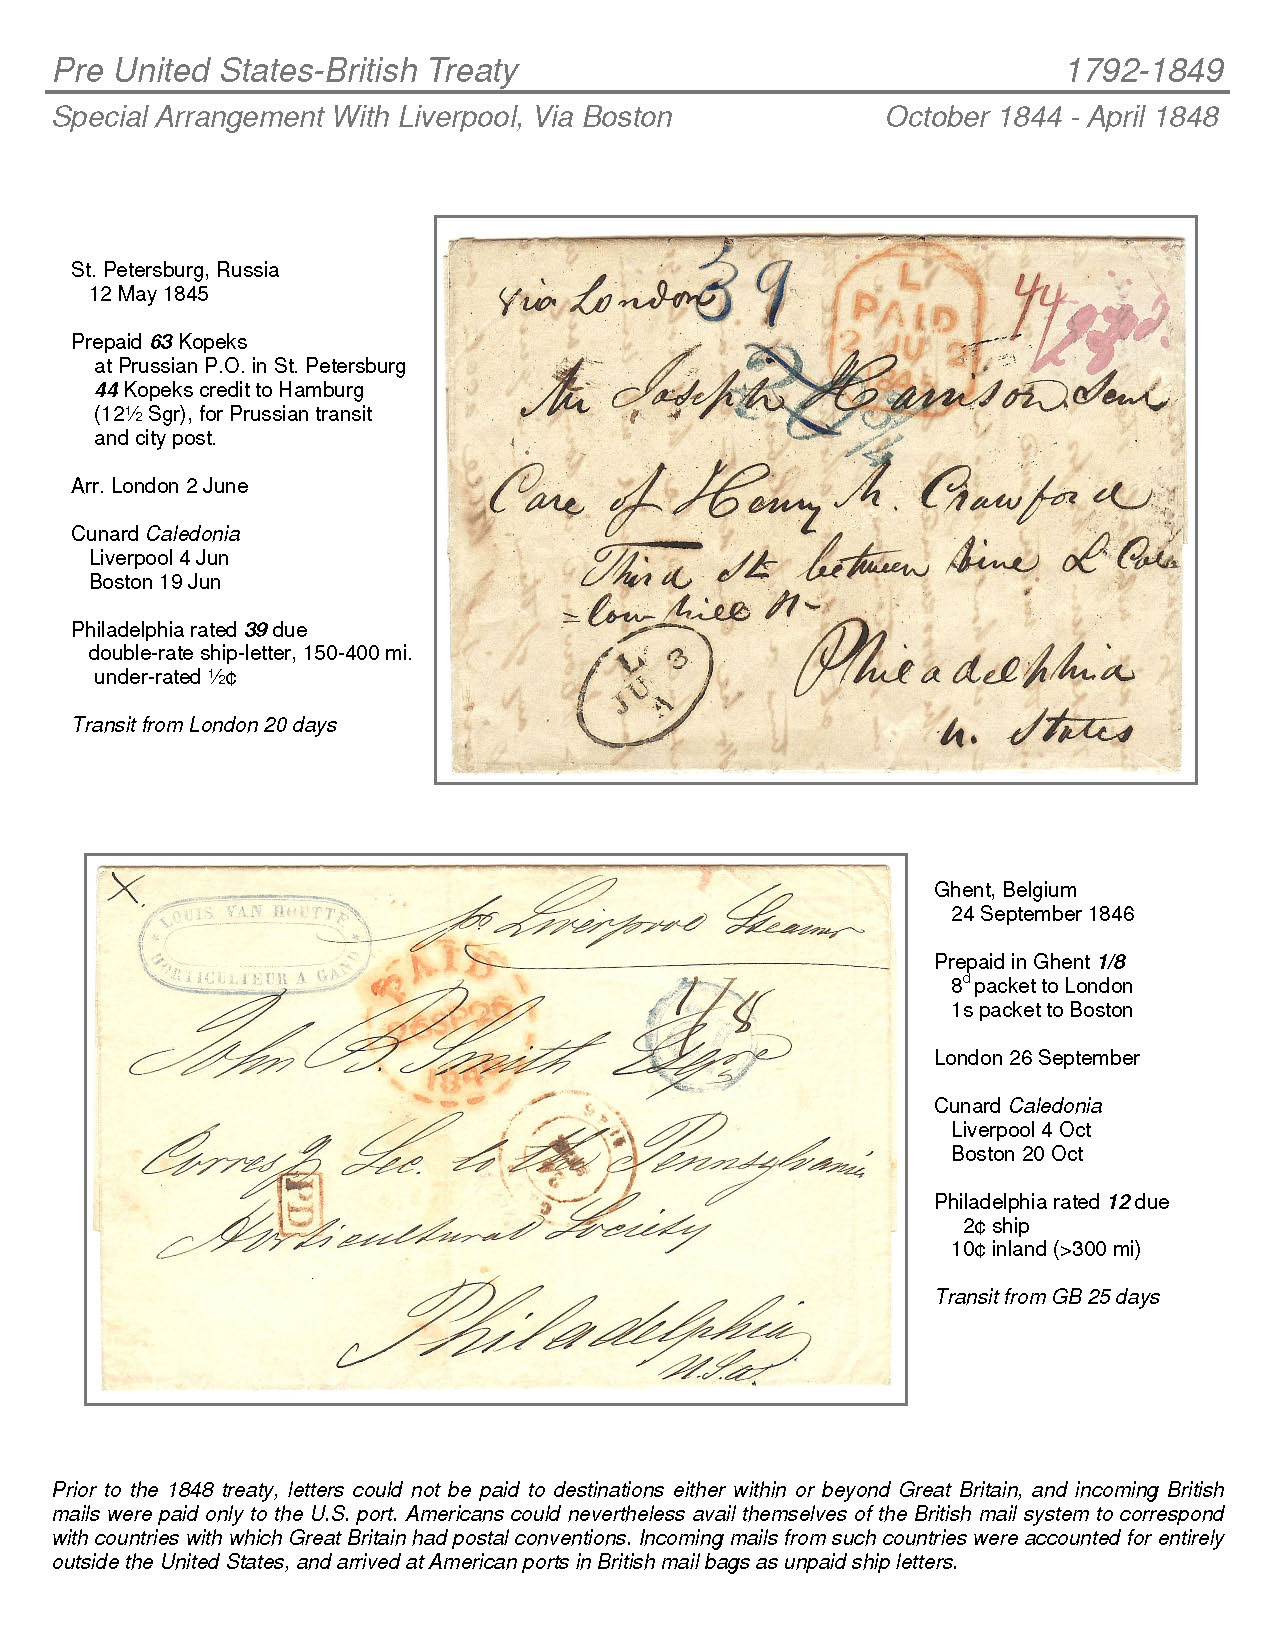 Pre United States-British Treaty 1792-1849
Special Arrangement With Liverpool, Via Boston October 1844 - April 1848
St. Petersburg, Russia
12 May 1845
Prepaid 63 Kopeks
at Prussian P.O. in St. Petersburg
44 Kopeks credit to Hamburg
(12½ Sgr), for Prussian transit
and city post.
Arr. London 2 June
Cunard Caledonia
Liverpool 4 Jun
Boston 19 Jun
Philadelphia rated 39 due
double-rate ship-letter, 150-400 mi.
under-rated ½¢
Transit from London 20 days
via London
39
L
PAID
2 JU 2
44
Mr Joseph Harrison Senr
Care of Henry M. Crawford
Third St between Vine & Cal
=lowhill St
L
JU 3
A
Philadelphia
U. States
X.
LOUIS VAN HOUTTE
HORTICULTEUR A GAND
pr Liverpool Steamer
PAID
26SP26
184
1/8
John B. Smith Esqre
Corresg Sec. to the Pennsylvania
PD
Horticultural Society
Philadelphia
U.S.a.
Ghent, Belgium
24 September 1846
Prepaid in Ghent 1/8
8d packet to London
1s packet to Boston
London 26 September
Cunard Caledonia
Liverpool 4 Oct
Boston 20 Oct
Philadelphia rated 12 due
2¢ ship
10¢ inland (>300 mi)
Transit from GB 25 days
Prior to the 1848 treaty, letters could not be paid to destinations either within or beyond Great Britain, and incoming British
mails were paid only to the U.S. port. Americans could nevertheless avail themselves of the British mail system to correspond
with countries with which Great Britain had postal conventions. Incoming mails from such countries were accounted for entirely
outside the United States, and arrived at American ports in British mail bags as unpaid ship letters.